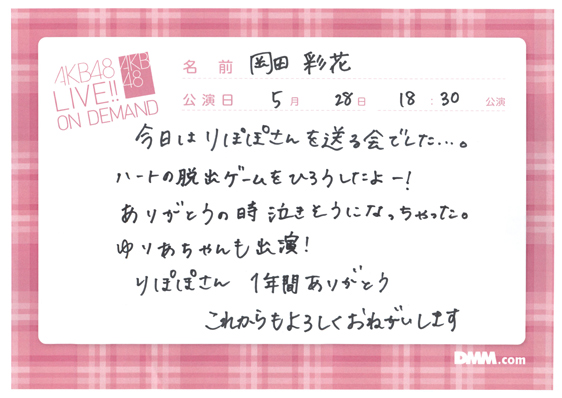 AKB48
LIVE!!
ON DEMAND
AKB
48
名 前 岡田 彩花
公演日 5月 28日 18:30 公演
今日はりぽぽさんを送る会でした…。
ハートの脱出ゲームをひろうしたよー!
ありがとうの時泣きそうになっちゃった。
ゆりあちゃんも出演!
りぽぽさん 1年間ありがとう
これからもよろしくおねがいします
DMM.com